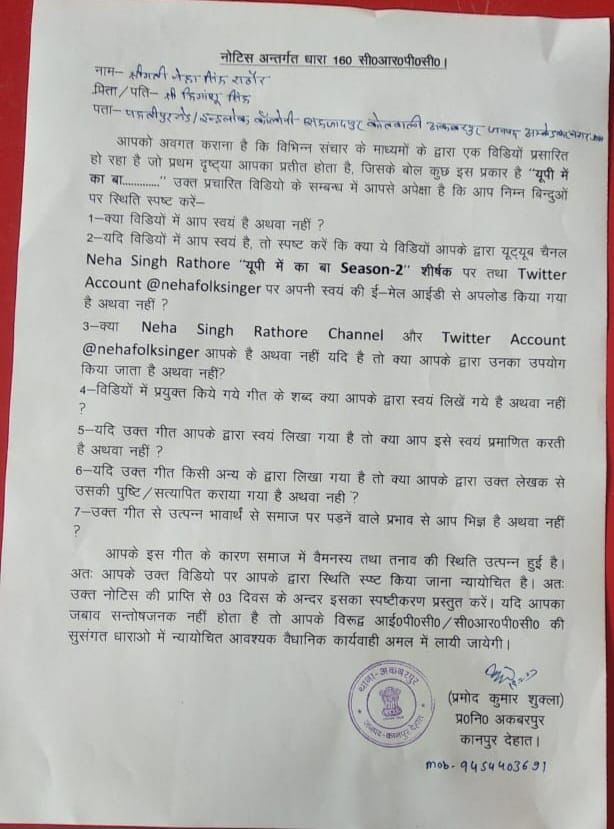 नोटिस अन्तर्गत धारा 160 सी0आर0पी0सी0।
नाम– श्रीमती नेहा सिंह राठौर
पिता/पति– श्री हिमांशु सिंह
पता– कॉलोनी कोतवाली अकबरपुर जनपद अम्बेडकरनगर
आपको अवगत कराना है कि विभिन्न संचार के माध्यमों के द्वारा एक विडियों प्रसारित
हो रहा है जो प्रथम दृष्ट्या आपका प्रतीत होता है, जिसके बोल कुछ इस प्रकार है "यूपी में
का बा............." उक्त प्रचारित विडियो के सम्बन्ध में आपसे अपेक्षा है कि आप निम्न बिन्दुओं
पर स्थिति स्पष्ट करें–
1–क्या विडियों में आप स्वयं है अथवा नहीं ?
2–यदि विडियों में आप स्वयं है, तो स्पष्ट करें कि क्या ये विडियों आपके द्वारा यूट्यूब चैनल
Neha Singh Rathore "यूपी में का बा Season-2" शीर्षक पर तथा Twitter
Account @nehafolksinger पर अपनी स्वयं की ई–मेल आईडी से अपलोड किया गया
है अथवा नहीं ?
3–क्या Neha Singh Rathore Channel और Twitter Account
@nehafolksinger आपके है अथवा नहीं यदि है तो क्या आपके द्वारा उनका उपयोग
किया जाता है अथवा नहीं?
4–विडियों में प्रयुक्त किये गये गीत के शब्द क्या आपके द्वारा स्वयं लिखें गये है अथवा नहीं
?
5–यदि उक्त गीत आपके द्वारा स्वयं लिखा गया है तो क्या आप इसे स्वयं प्रमाणित करती
है अथवा नहीं ?
6–यदि उक्त गीत किसी अन्य के द्वारा लिखा गया है तो क्या आपके द्वारा उक्त लेखक से
उसकी पुष्टि/सत्यापित कराया गया है अथवा नही ?
7–उक्त गीत से उत्पन्न भावार्थ से समाज पर पड़नें वाले प्रभाव से आप भिज्ञ है अथवा नहीं
?
आपके इस गीत के कारण समाज में वैमनस्य तथा तनाव की स्थिति उत्पन्न हुई है।
अतः आपके उक्त विडियो पर आपके द्वारा स्थिति स्प्ष्ट किया जाना न्यायोचित है। अतः
उक्त नोटिस की प्राप्ति से 03 दिवस के अन्दर इसका स्पष्टीकरण प्रस्तुत करें। यदि आपका
जबाव सन्तोषजनक नहीं होता है तो आपके विरूद्व आई0पी0सी0/सी0आर0पी0सी0 की
सुसंगत धाराओ में न्यायोचित आवश्यक वैधानिक कार्यवाही अमल में लायी जायेगी।
थाना–अकबरपुर
जनपद–कानपुर देहात
(प्रमोद कुमार शुक्ला)
प्र0नि0 अकबरपुर
कानपुर देहात।
mob- 9454403691